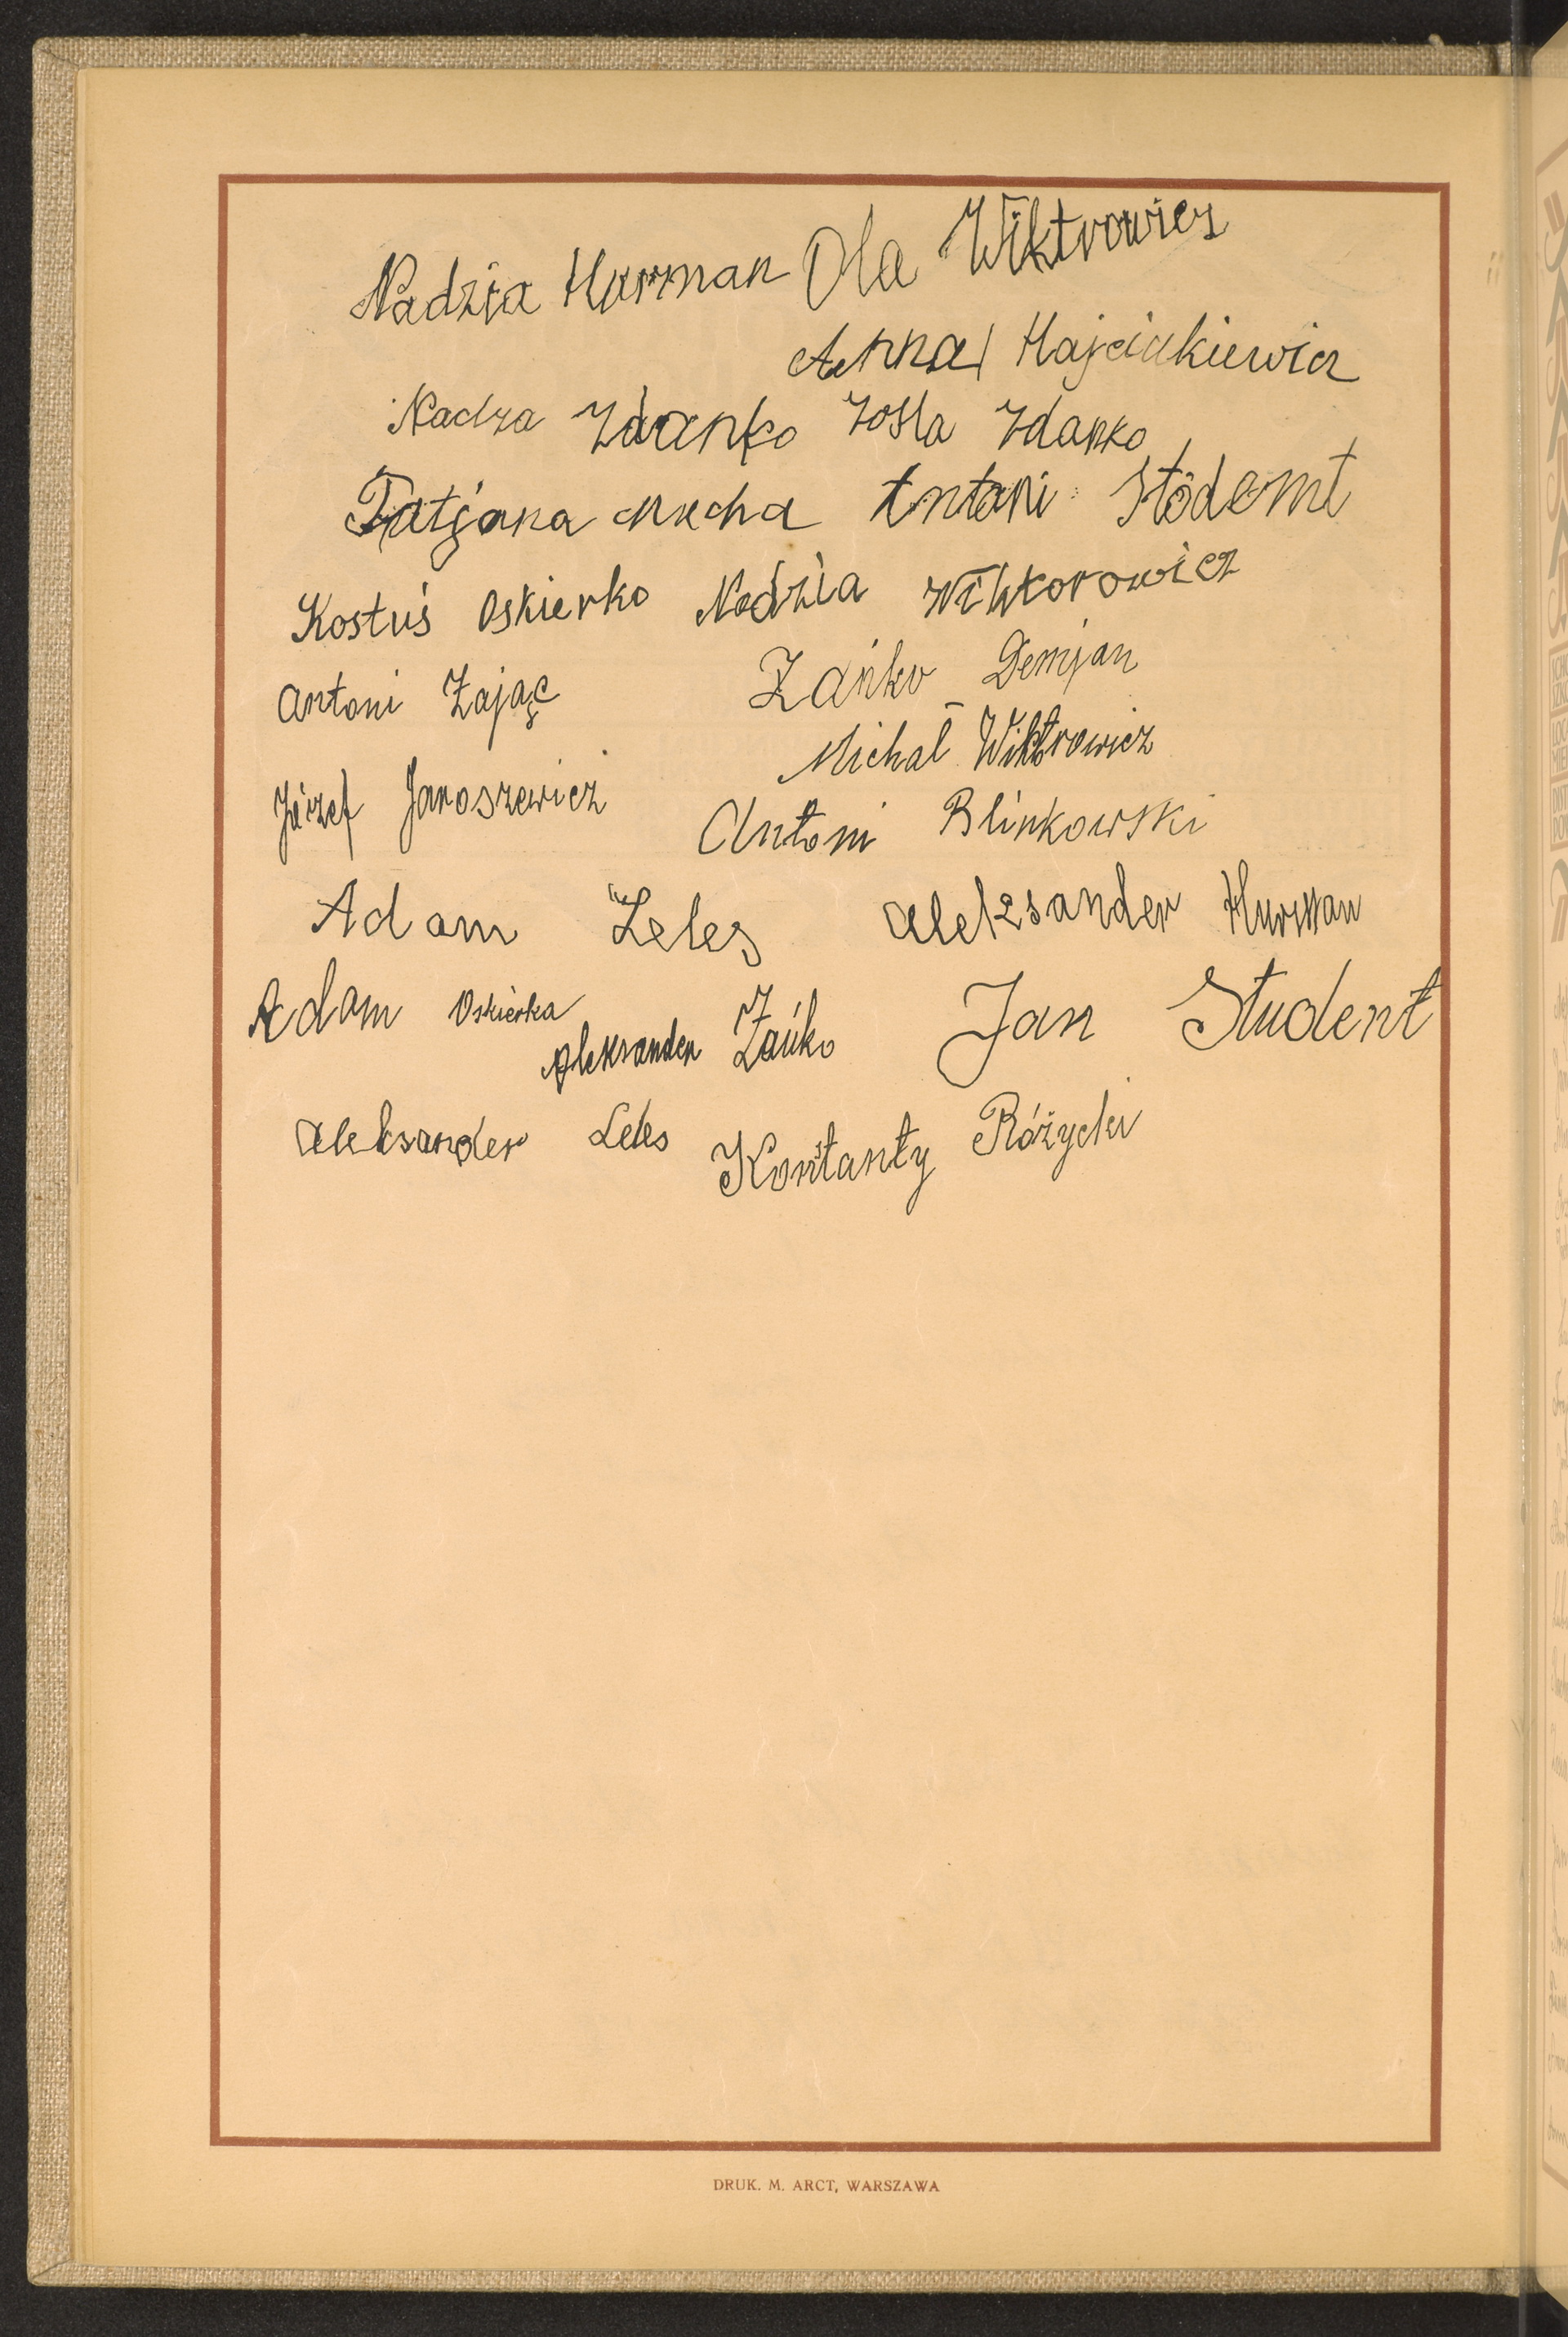 Nadzia Hurman Ola Wiktrowicz
Anna Hajciukiewicz
Nadza Zdanko Zosla Zdanko
Tatjana Mucha Antoni Stódemt
Kostuś Oskierko Nadzia Wiktorowicz
Antoni Zając Zańko Demjan
Michał Wiktrowicz
Józef Jaroszewicz Antoni Blinkowski
Adam Leles Aleksander Hurman
Adam Oskierka Aleksander Zańko Jan Student
Aleksander Leles Konstanty Różycki
DRUK. M. ARCT, WARSZAWA